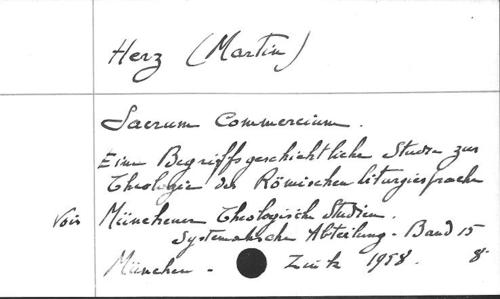 Herz (Martin)
Sacrum Commercium.
Eine Begriffsgeschichtliche Studie zur
Theologie der Römischen liturgiesprache
Voir Münchener Theologische Studien.
Systematische Abteilung - Band 15
München - Zink 1958. 8°